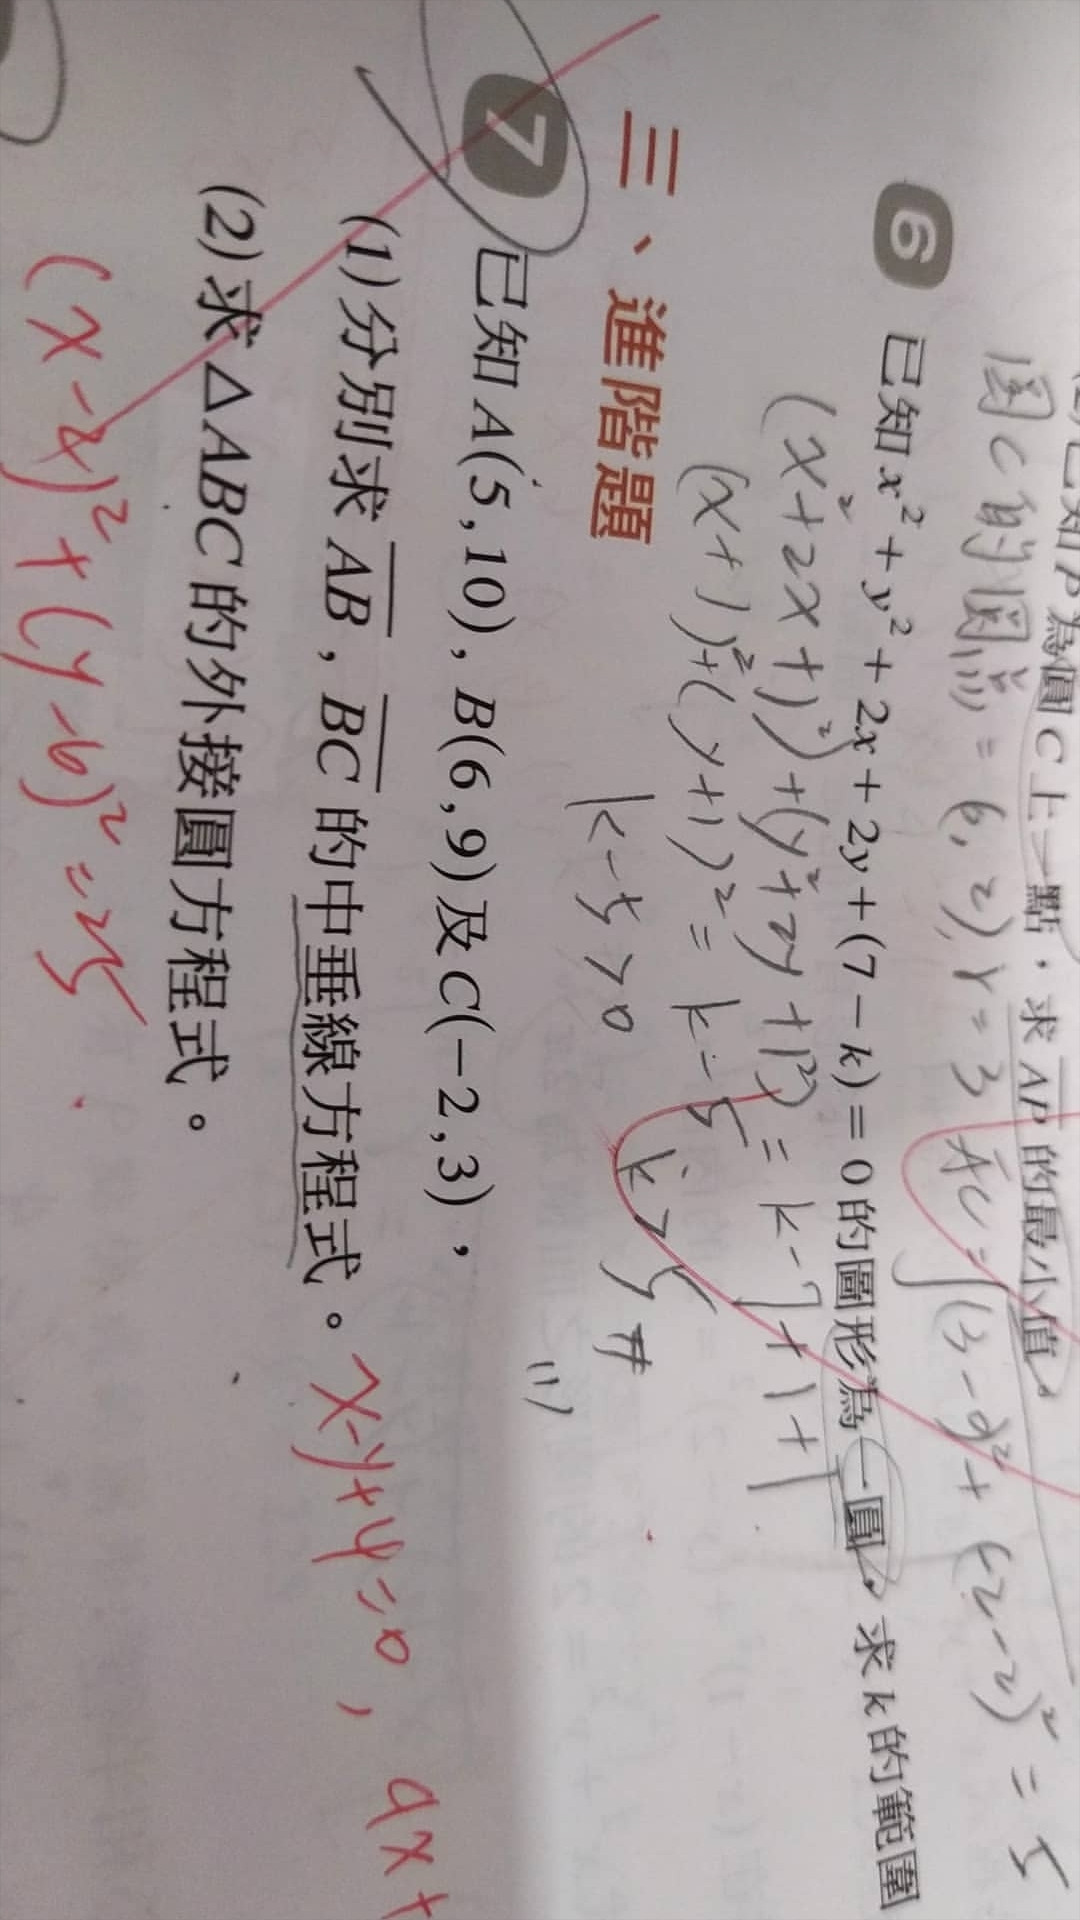 已知P為圓C上一點，求AP的最小值。
圓C的圓心=(6,2), r=3 AC=√(3-2)²+(2-2)²=5
6 已知x²+y²+2x+2y+(7-k)=0的圖形為一圓，求k的範圍
(x²+2x+1²)+(y²+2y+1²)=k-7+1+1
(x+1)²+(y+1)²=k-5
k-5>0
k>5#
三、進階題
7 已知A(5,10), B(6,9)及C(-2,3)，
(1)
(1)分別求AB, BC的中垂線方程式。 x-y+4=0, 4x+
(2)求△ABC的外接圓方程式。
(x-2)²+(y-6)²=25